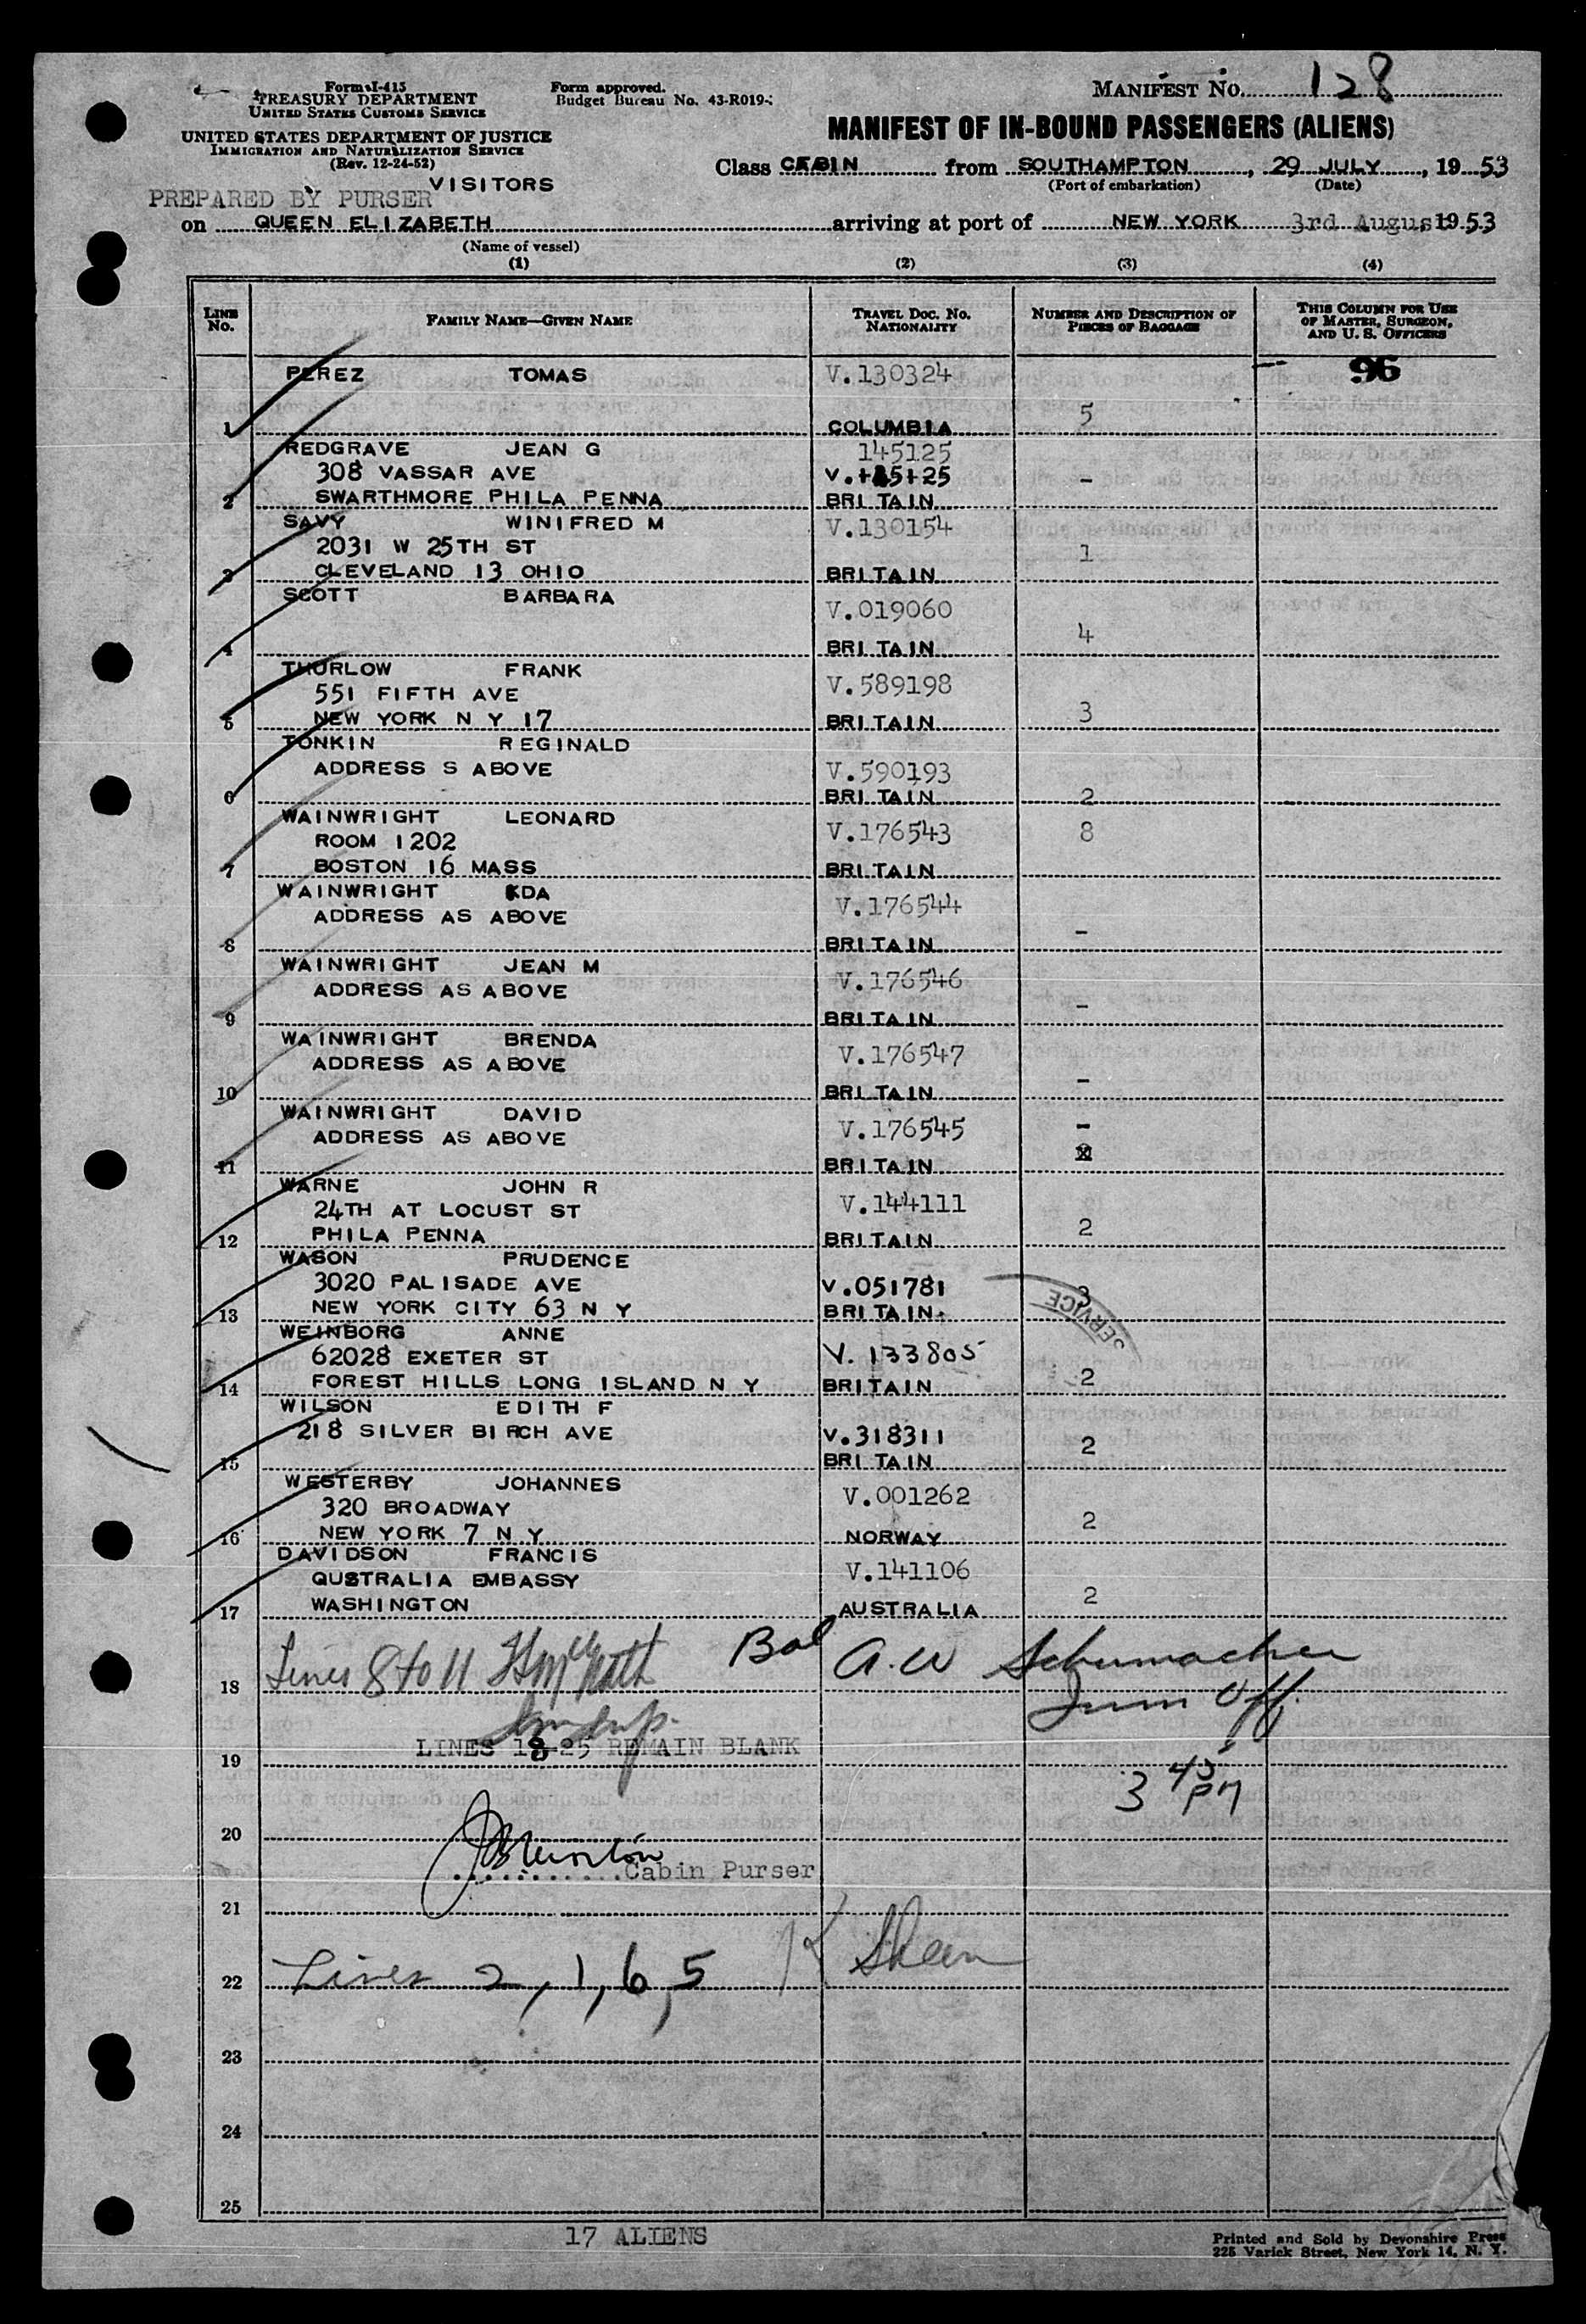 Form I-415
TREASURY DEPARTMENT
UNITED STATES CUSTOMS SERVICE
Form approved.
Budget Bureau No. 43-R019-
MANIFEST NO. 128
UNITED STATES DEPARTMENT OF JUSTICE
IMMIGRATION AND NATURALIZATION SERVICE
(Rev. 12-24-52)
MANIFEST OF IN-BOUND PASSENGERS (ALIENS)
Class CABIN from SOUTHAMPTON, 29 JULY, 1953
(Port of embarkation) (Date)
VISITORS
PREPARED BY PURSER
on QUEEN ELIZABETH arriving at port of NEW YORK 3rd August 1953
(Name of vessel)
(1) (2) (3) (4)
LINE No. FAMILY NAME—GIVEN NAME TRAVEL DOC. NO. NATIONALITY NUMBER AND DESCRIPTION OF PIECES OF BAGGAGE THIS COLUMN FOR USE OF MASTER, SURGEON, AND U. S. OFFICERS
PEREZ TOMAS V.130324 96
1 COLUMBIA 5
REDGRAVE JEAN G 145125
308 VASSAR AVE V.+85+25 -
2 SWARTHMORE PHILA PENNA BRITAIN
SAVY WINIFRED M V.130154
2031 W 25TH ST 1
3 CLEVELAND 13 OHIO BRITAIN
SCOTT BARBARA V.019060
4 BRITAIN 4
THURLOW FRANK
551 FIFTH AVE V.589198
5 NEW YORK N Y 17 BRITAIN 3
TONKIN REGINALD
ADDRESS S ABOVE V.590193
6 BRITAIN 2
WAINWRIGHT LEONARD V.176543 8
ROOM 1202
7 BOSTON 16 MASS BRITAIN
WAINWRIGHT KDA V.176544
ADDRESS AS ABOVE -
8 BRITAIN
WAINWRIGHT JEAN M V.176546
ADDRESS AS ABOVE -
9 BRITAIN
WAINWRIGHT BRENDA V.176547
ADDRESS AS ABOVE -
10 BRITAIN
WAINWRIGHT DAVID V.176545 -
ADDRESS AS ABOVE
11 BRITAIN
WARNE JOHN R V.144111
24TH AT LOCUST ST 2
12 PHILA PENNA BRITAIN
WASON PRUDENCE
3020 PALISADE AVE V.051781 3
13 NEW YORK CITY 63 N Y BRITAIN
SERVICE
WEINBORG ANNE
62028 EXETER ST V. 133805
14 FOREST HILLS LONG ISLAND N Y BRITAIN 2
WILSON EDITH F
218 SILVER BIRCH AVE V.318311 2
15 BRITAIN
WESTERBY JOHANNES V.001262
320 BROADWAY 2
16 NEW YORK 7 N Y NORWAY
DAVIDSON FRANCIS V.141106
QUSTRALIA EMBASSY 2
17 WASHINGTON AUSTRALIA
18 Lines 8 to 11 Bal A.W Schumacher
Imm Off.
19 LINES 18-25 REMAIN BLANK
3 45 PM
20
Cabin Purser
21
22 Lines 2, 1, 6, 5
23
24
25
17 ALIENS
Printed and Sold by Devonshire Press
225 Varick Street, New York 14, N. Y.